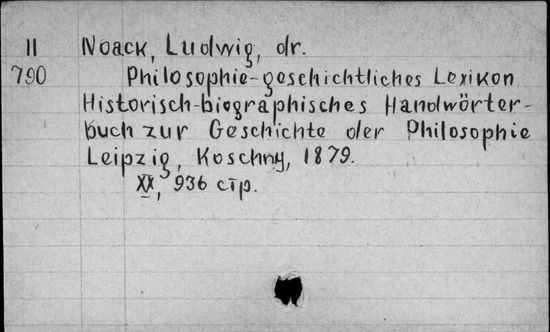 II Noack, Ludwig, dr.
790 Philosophie-geschichtliches Lexikon
Historisch-biographisches Handwörter-
buch zur Geschichte der Philosophie
Leipzig, Koschny, 1879.
XX, 936 стр.